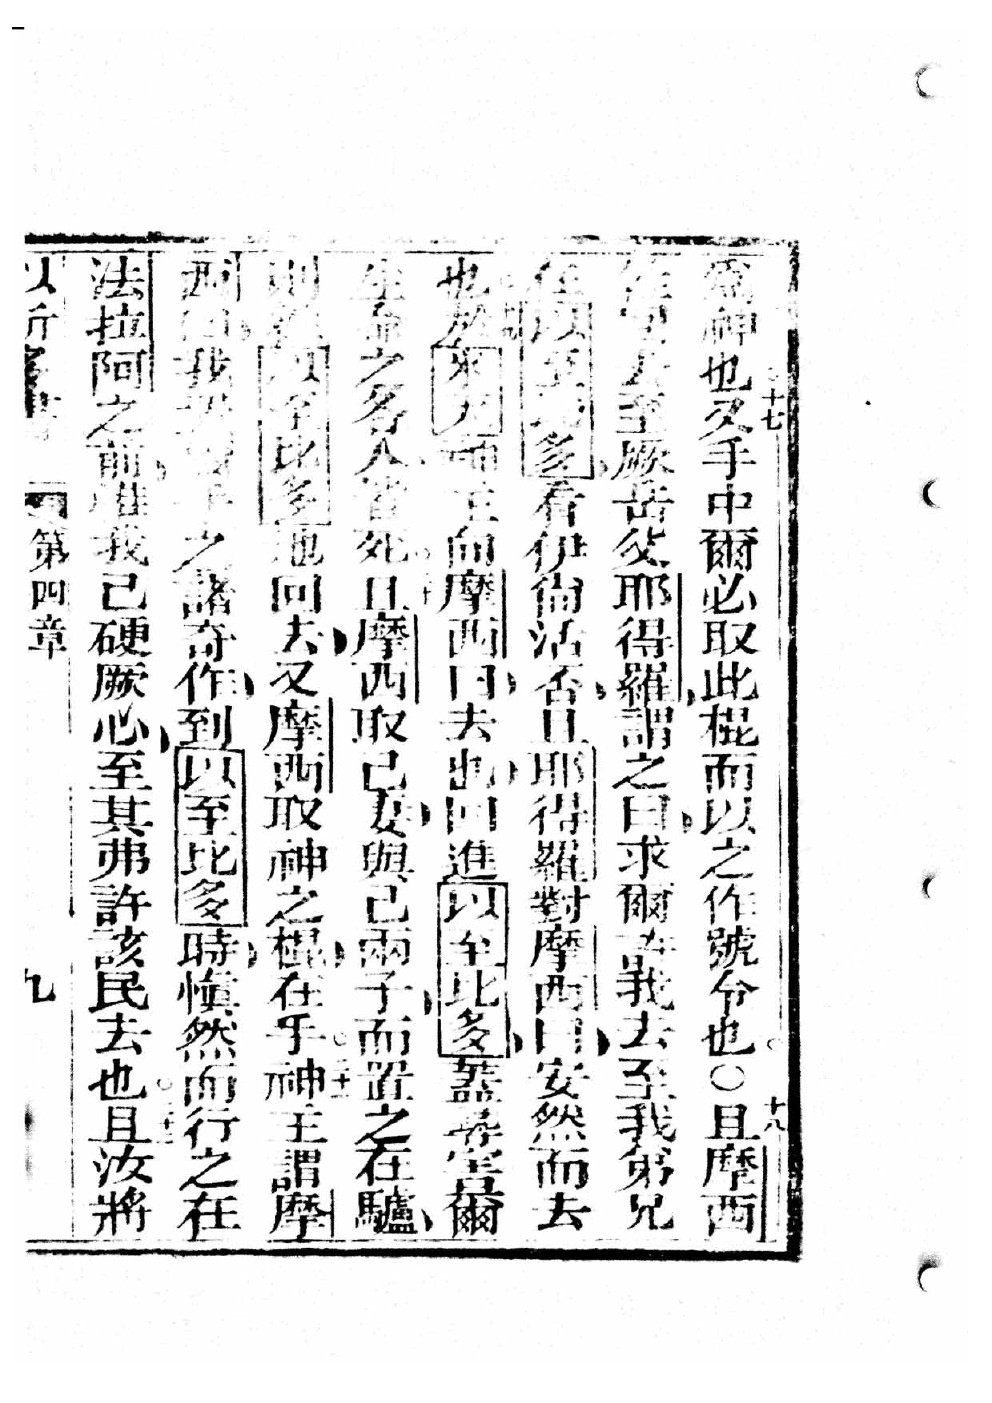 為神也又手中爾必取此棍而以之作號令也〇且摩西
十七
十八
去至厥岳父耶得羅謂之曰求爾許我去至我弟兄
以至比多看伊尚活否且耶得羅對摩西曰安然而去
也於米大神主而摩西曰去也回進以至比多蓋尋害爾
生命之各人皆死且摩西取己妻與己兩子而置之在驢
以至比多地回去又摩西取神之棍在手神主謂摩
西曰我之諸奇作到以至比多時慎然而行之在
法拉阿之前惟我己硬厥心至其弗許該民去也且汝將
第四章
九